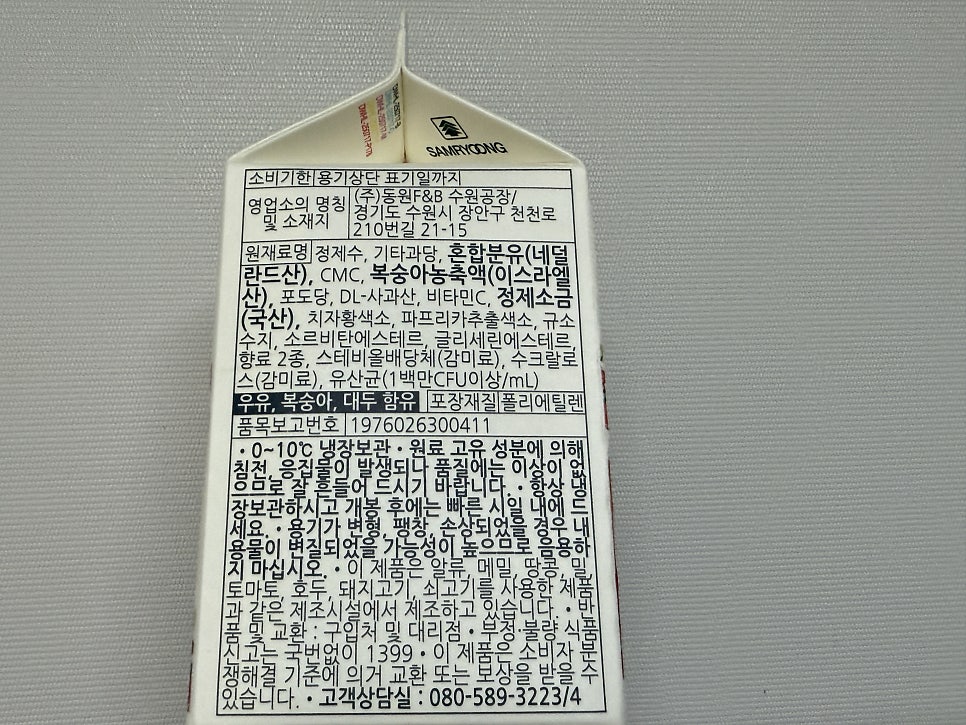 SAMRYOONG
소비기한 용기상단 표기일까지
영업소의 명칭 및 소재지
(주)동원F&B 수원공장/
경기도 수원시 장안구 천천로
210번길 21-15
원재료명 정제수, 기타과당, 혼합분유(네덜
란드산), CMC, 복숭아농축액(이스라엘
산), 포도당, DL-사과산, 비타민C, 정제소금
(국산), 치자황색소, 파프리카추출색소, 규소
수지, 소르비탄에스테르, 글리세린에스테르,
향료 2종, 스테비올배당체(감미료), 수크랄로
스(감미료), 유산균(1백만CFU이상/mL)
우유, 복숭아, 대두 함유 포장재질 폴리에틸렌
품목보고번호 1976026300411
· 0~10℃ 냉장보관 · 원료 고유 성분에 의해
침전, 응집물이 발생되나 품질에는 이상이 없
으므로 잘 흔들어 드시기 바랍니다. · 항상 냉
장보관하시고 개봉 후에는 빠른 시일 내에 드
세요. · 용기가 변형, 팽창, 손상되었을 경우 내
용물이 변질되었을 가능성이 높으므로 음용하
지 마십시오. · 이 제품은 알류, 메밀, 땅콩, 밀,
토마토, 호두, 돼지고기, 쇠고기를 사용한 제품
과 같은 제조시설에서 제조하고 있습니다. · 반
품 및 교환 : 구입처 및 대리점 · 부정·불량 식품
신고는 국번없이 1399 · 이 제품은 소비자 분
쟁해결 기준에 의거 교환 또는 보상을 받을 수
있습니다. · 고객상담실 : 080-589-3223/4